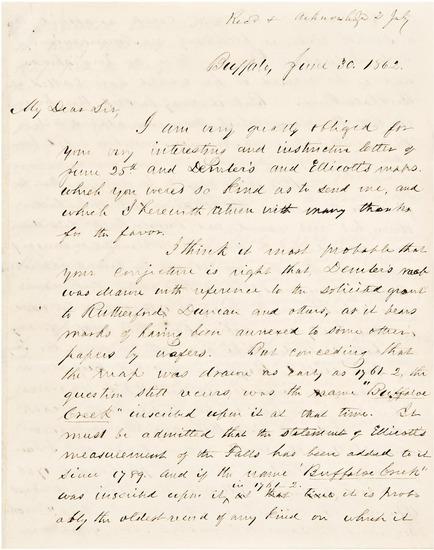 Recd & Acknowledged 2 July
Buffalo, June 30. 1862.
My Dear Sir,
I am very greatly obliged for
your very interesting and instructive letter of
June 25th and Demler's and Ellicott's maps.
which you were so kind as to send me, and
which I herewith return with many thanks
for the favor.
I think it most probable that
your conjecture is right that, Demler's map
was drawn with reference to the solicited grant
to Rutherford, Duncan and others, as it bears
marks of having been annexed to some other
papers by wafers. But conceding that
the map was drawn as early as 1761-2, the
question still recurs, was the name "Buffaloe
Creek" inscribed upon it at that time. It
must be admitted that the statement of Ellicott's
measurement of the Falls has been added to it
since 1789. and if the name 'Buffaloe Creek"
was inscribed upon it, in 1761-2. it is prob-
ably the oldest record of any kind on which it